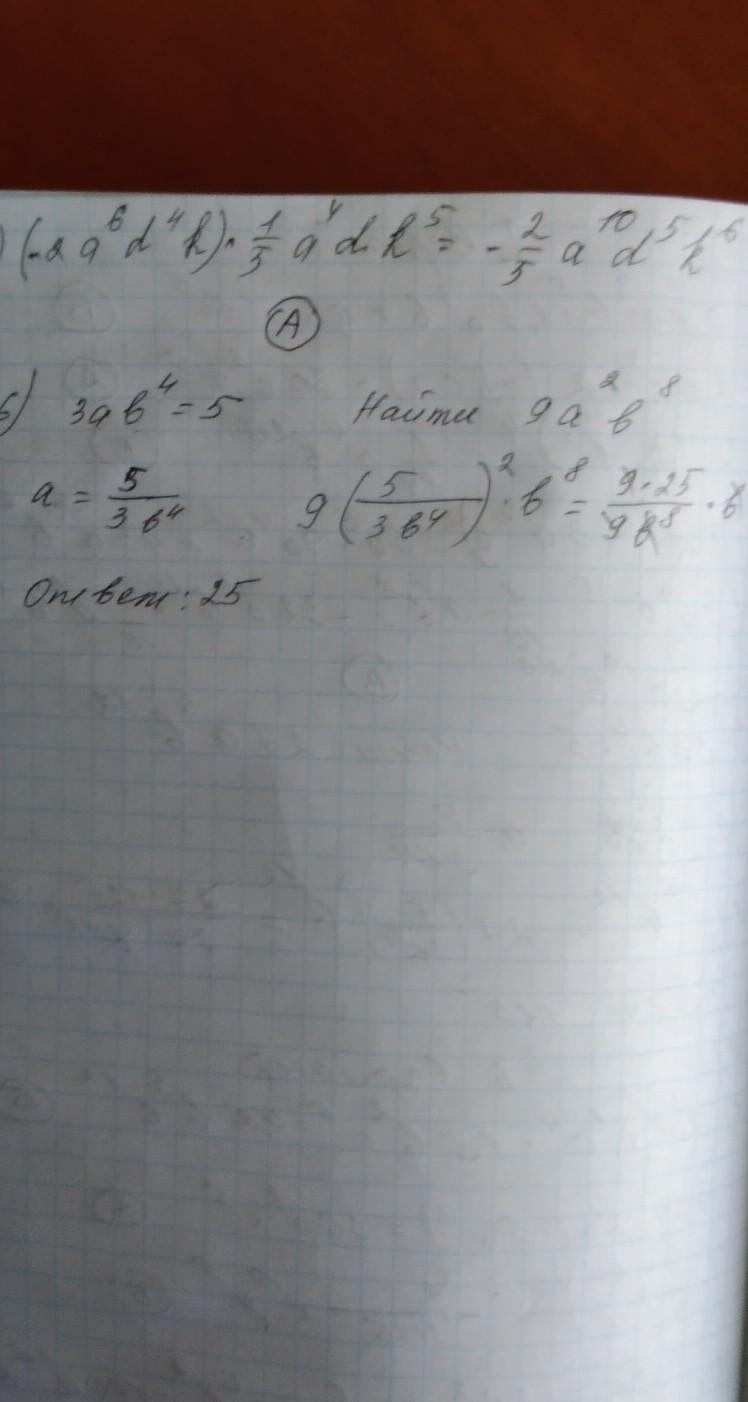 ) (-2a⁶d⁴k)·1/5 a⁴dk⁵ = -2/5 a¹⁰d⁵k⁶
A
б) 3ab⁴=5 Найти 9a²b⁸
a = 5/3b⁴ 9(5/3b⁴)²·b⁸ = 9·25/9b⁸ · b
Ответ: 25